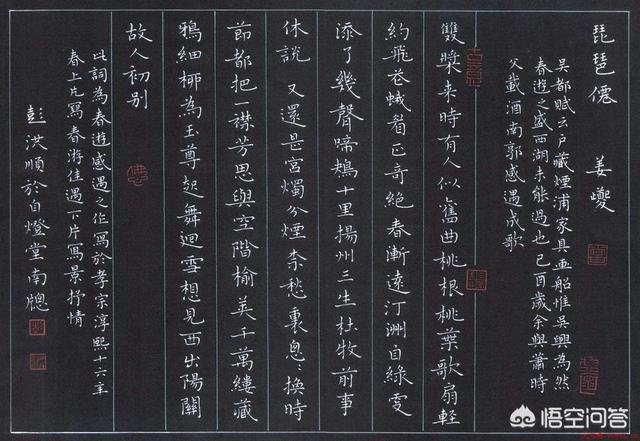 琵琶僊 姜夔
吴都賦云户藏煙浦家具画船惟吳興為然
春遊之盛西湖未能過也己酉歲余與蕭時
父載酒南郭感遇成歌
雙槳来時有人似舊曲桃根桃葉歌扇輕
約飛花蛾眉正奇絕春漸遠汀洲自綠更
添了幾聲啼鴂十里揚州三生杜牧前事
休說 又還是宮燭分煙奈愁裏怱〻換時
節都把一襟芳思與空階榆莢千萬縷藏
鴉細柳為玉尊起舞迴雪想見西出陽關
故人初别
此詞為春遊感遇之作寫於孝宗淳熙十六年
春上片寫春游佳遇下片寫景抒情
彭洪順於自燈堂南牕
悟空问答